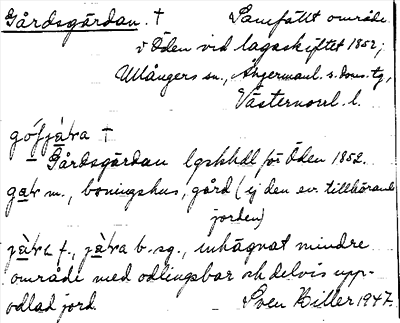 Gårdsgärdan. † Samfällt område
v Öden vid lagaskiftet 1852;
Ullångers sn., Ångermanl. s. doms. tg,
Västernorrl. l.
† 
Gårdsgärdan lgskhdl för Öden 1852.
m., boningshus, gård (ej den ev. tillhörande
jorden)
f., b. sg., inhägnat mindre
område med odlingsbar och delvis upp-
odlad jord. Sven Hiller 1947.